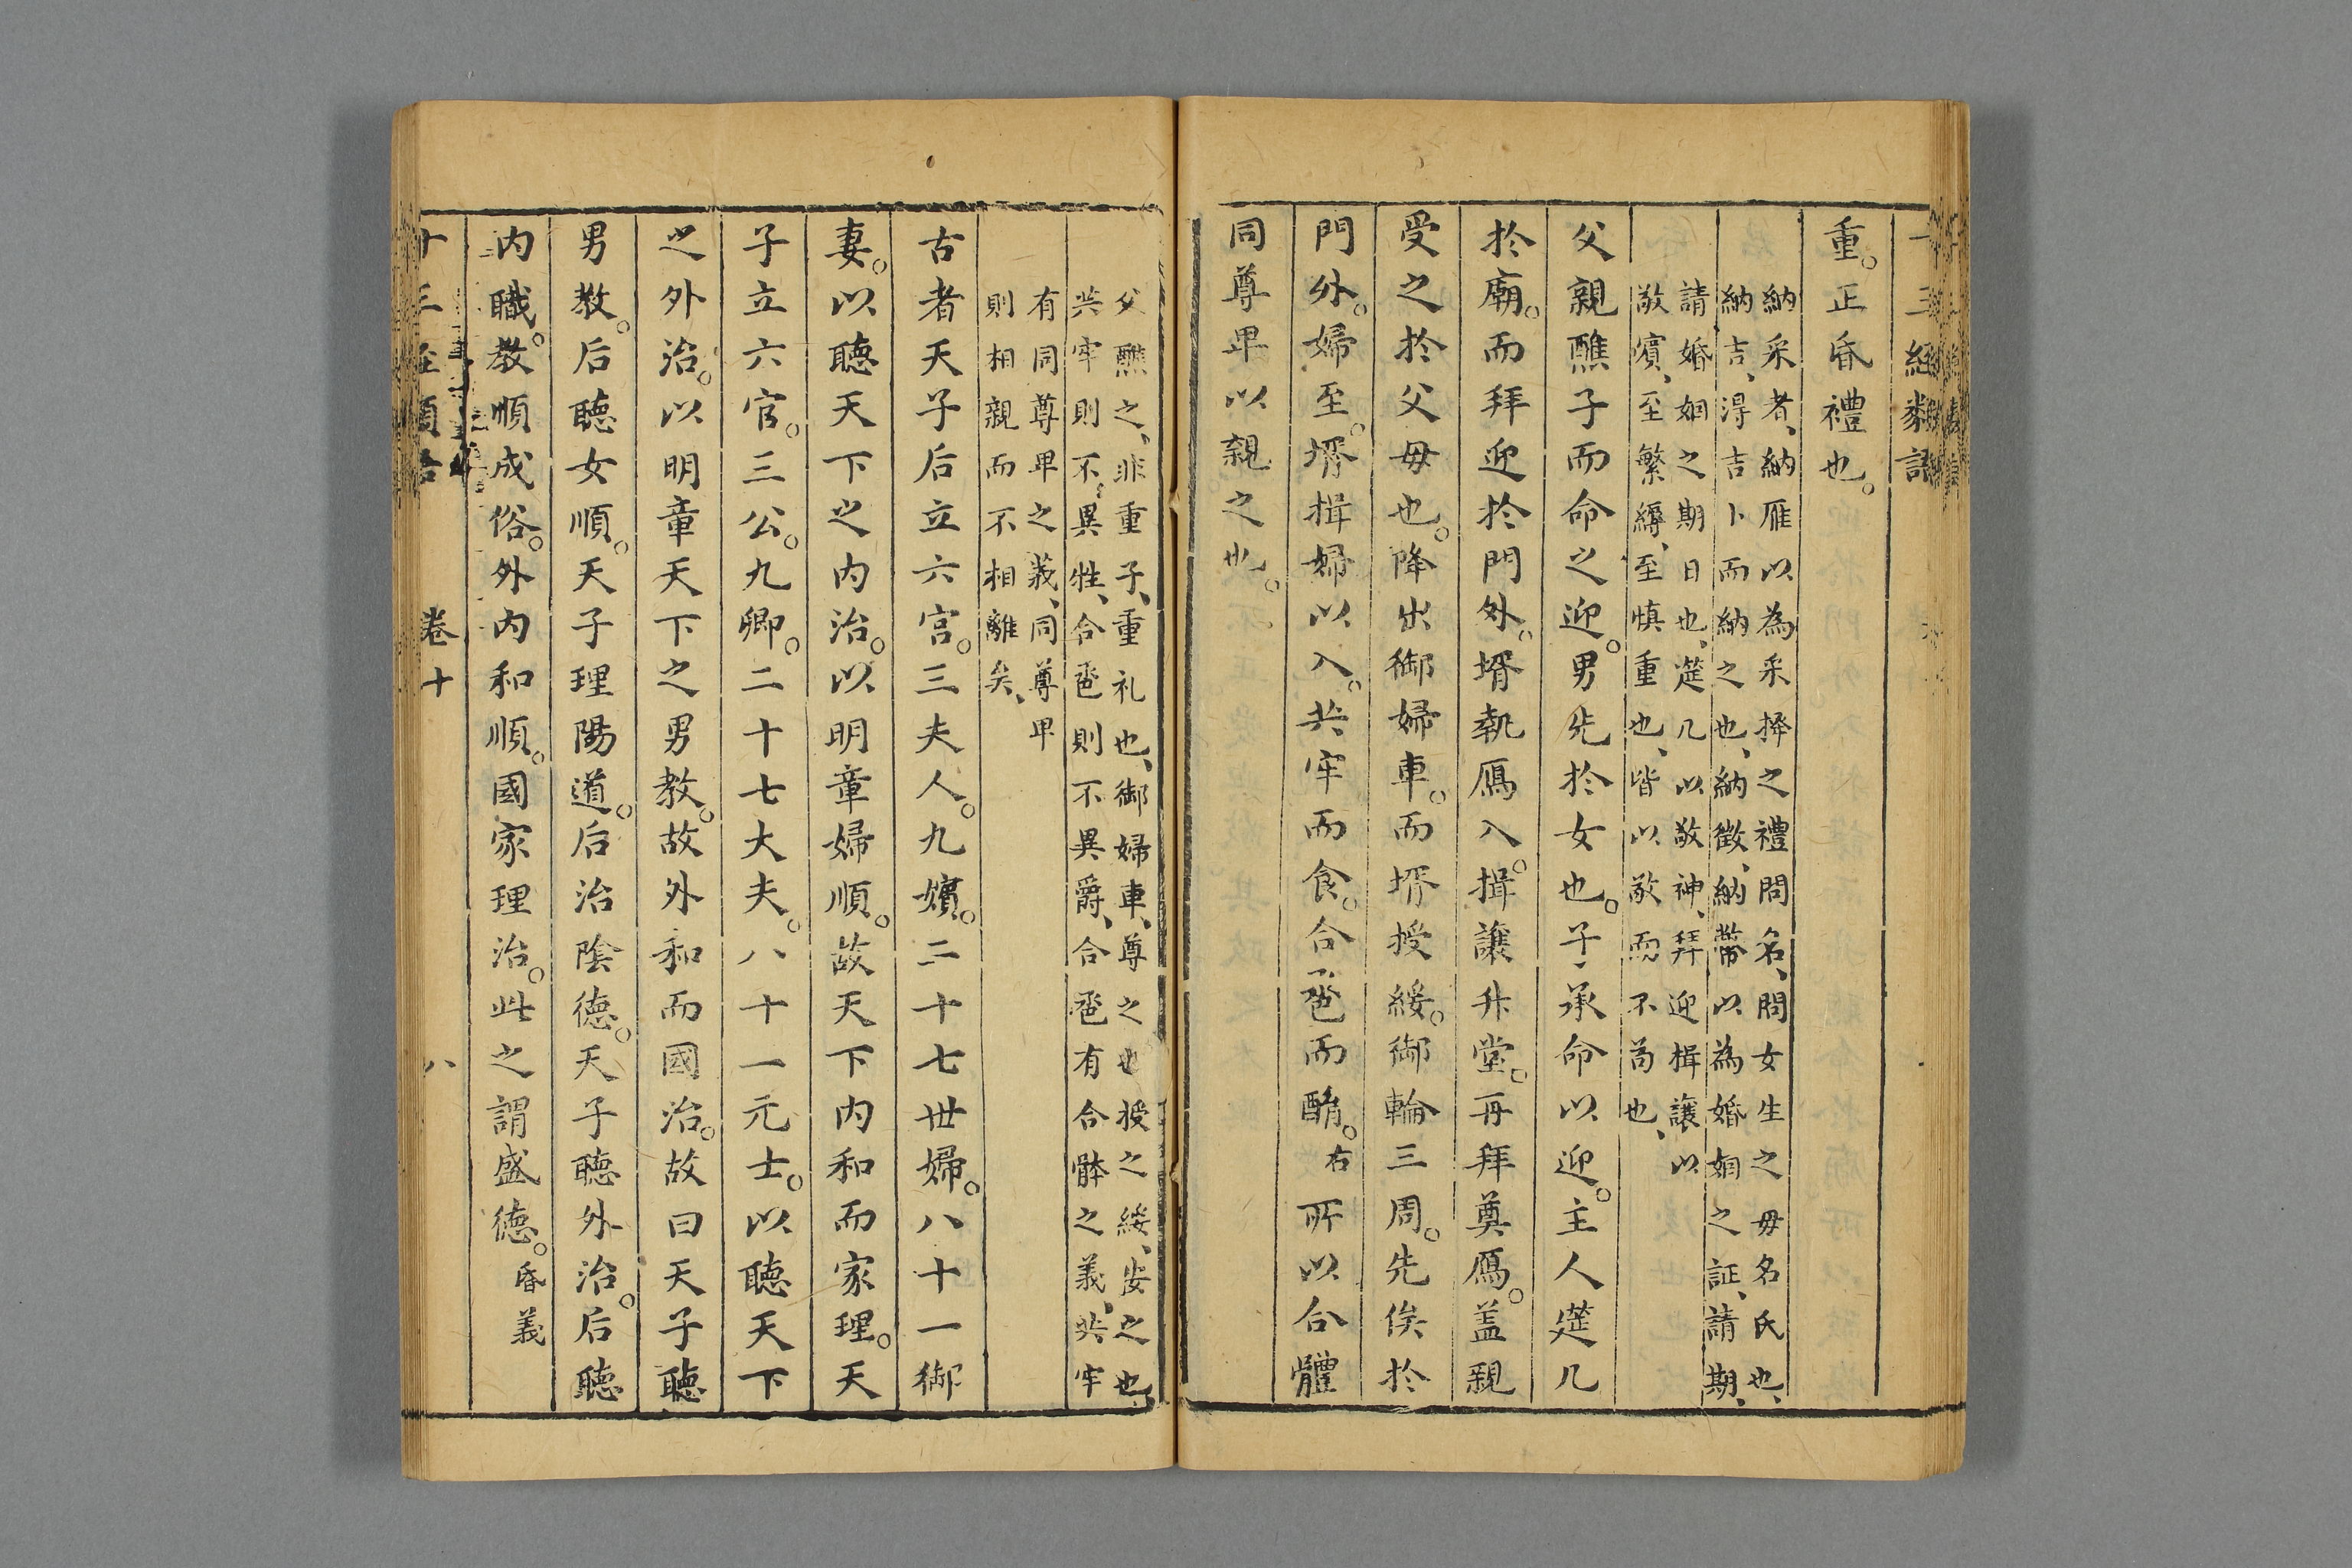 重。正昏禮也。
納采者、納雁以為采擇之禮問名、問女生之毋名氏也、
納吉、淂吉卜而納之也、納徵、納幣以為婚姻之証、請期、
請婚姻之期日也、筵几以敬神、拜迎揖讓以
敬賔、至繁縟、至慎重也、皆以敬而不苟也、
父親醮子而命之迎。男先於女也。子承命以迎。主人筵几
於廟。而拜迎於門外。壻執鴈入。揖讓升堂。再拜奠鴈。盖親
受之於父毋也。降出御婦車。而壻授綏。御輪三周。先俟於
門外。婦至。壻揖婦以入。共牢而食。合卺而酳。右所以合體
同尊卑以親之也。
父醮之、非重子、重礼也、御婦車、尊之也授之綏、安之也、
共牢則不異牲、合卺則不異爵、合卺有合骵之義、共牢
有同尊卑之義、同尊卑
則相親而不相離矣、
古者天子后立六宫。三夫人。九嬪。二十七世婦。八十一御
妻。以聽天下之内治。以明章婦順。故天下内和而家理。天
子立六官。三公。九卿。二十七大夫。八十一元士。以聽天下
之外治。以明章天下之男教。故外和而國治。故曰天子聽
男教。后聽女順。天子理陽道。后治陰德。天子聽外治。后聽
内職。教順成俗。外内和順。國家理治。此之謂盛德。昏義
卷十
八